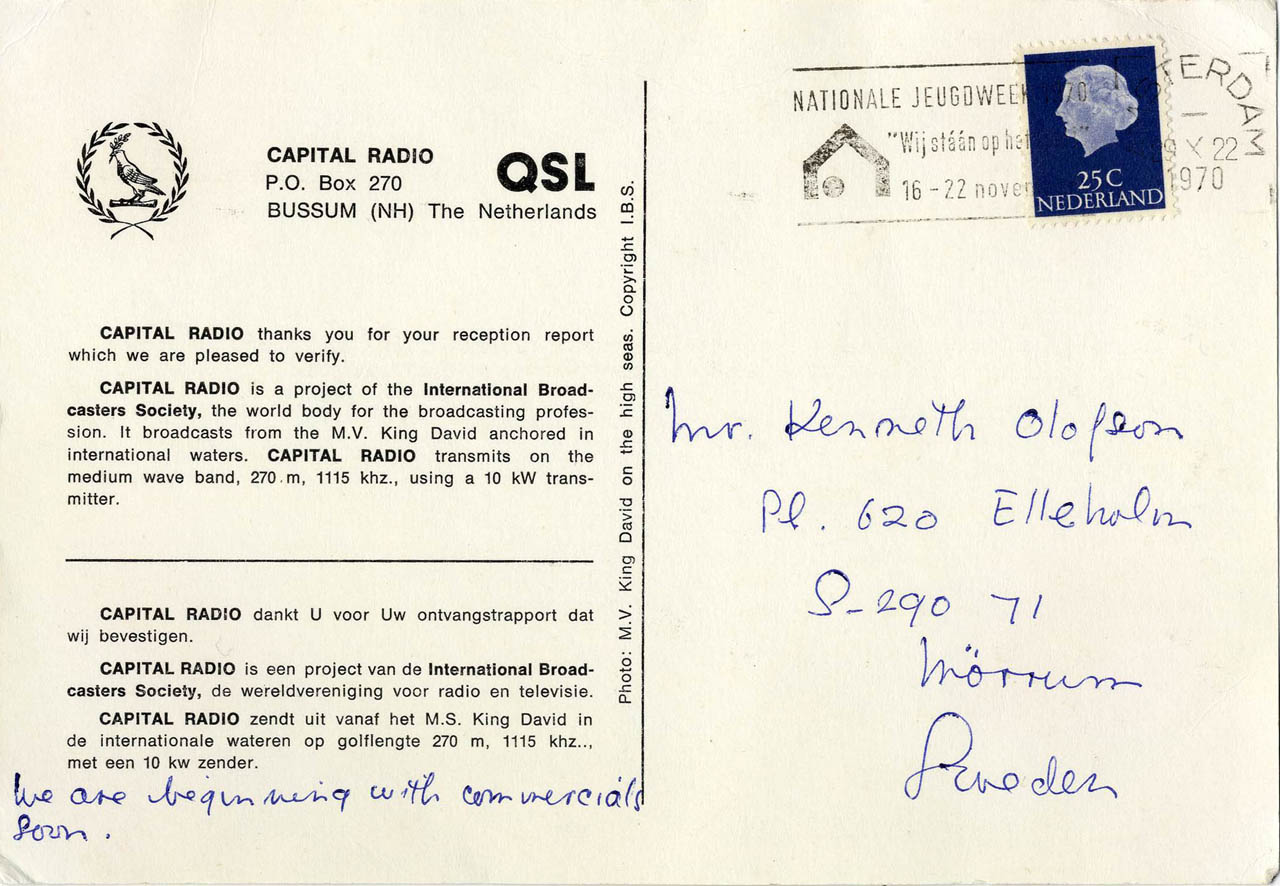 CAPITAL RADIO
P.O. Box 270
BUSSUM (NH) The Netherlands
QSL
CAPITAL RADIO thanks you for your reception report
which we are pleased to verify.
CAPITAL RADIO is a project of the International Broad-
casters Society, the world body for the broadcasting profes-
sion. It broadcasts from the M.V. King David anchored in
international waters. CAPITAL RADIO transmits on the
medium wave band, 270 m, 1115 khz., using a 10 kW trans-
mitter.
CAPITAL RADIO dankt U voor Uw ontvangstrapport dat
wij bevestigen.
CAPITAL RADIO is een project van de International Broad-
casters Society, de wereldvereniging voor radio en televisie.
CAPITAL RADIO zendt uit vanaf het M.S. King David in
de internationale wateren op golflengte 270 m, 1115 khz..,
met een 10 kw zender.
We are beginning with commercials
soon.
Photo: M.V. King David on the high seas. Copyright I.B.S.
NATIONALE JEUGDWEEK 1970
"Wij stáán op het
16 - 22 nover
TERDAM
X 22
1970
25C
NEDERLAND
Mr. Kenneth Olofson
Pl. 620 Elleholm
S-290 71
Mörrum
Sweden